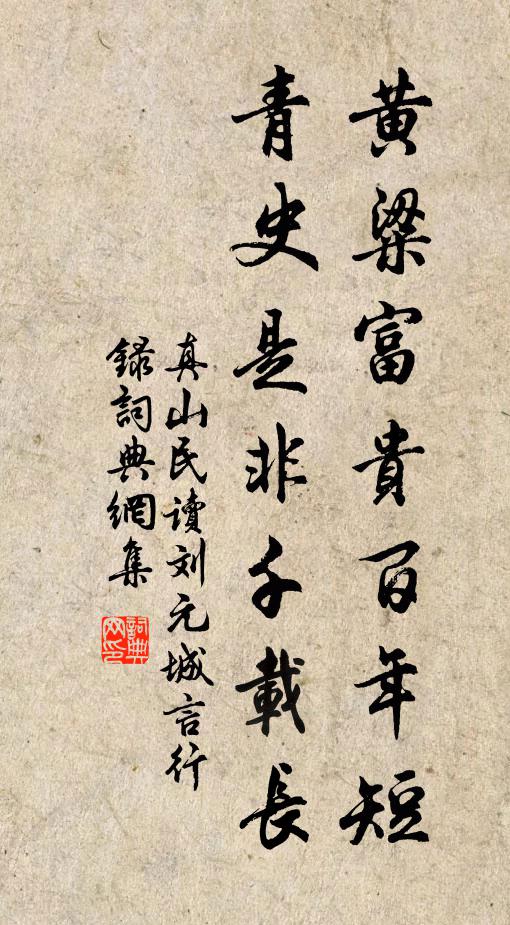 黄粱富貴百年短
青史是非千載長
真山民读刘元城言行
錄詞典網集
詞典网印